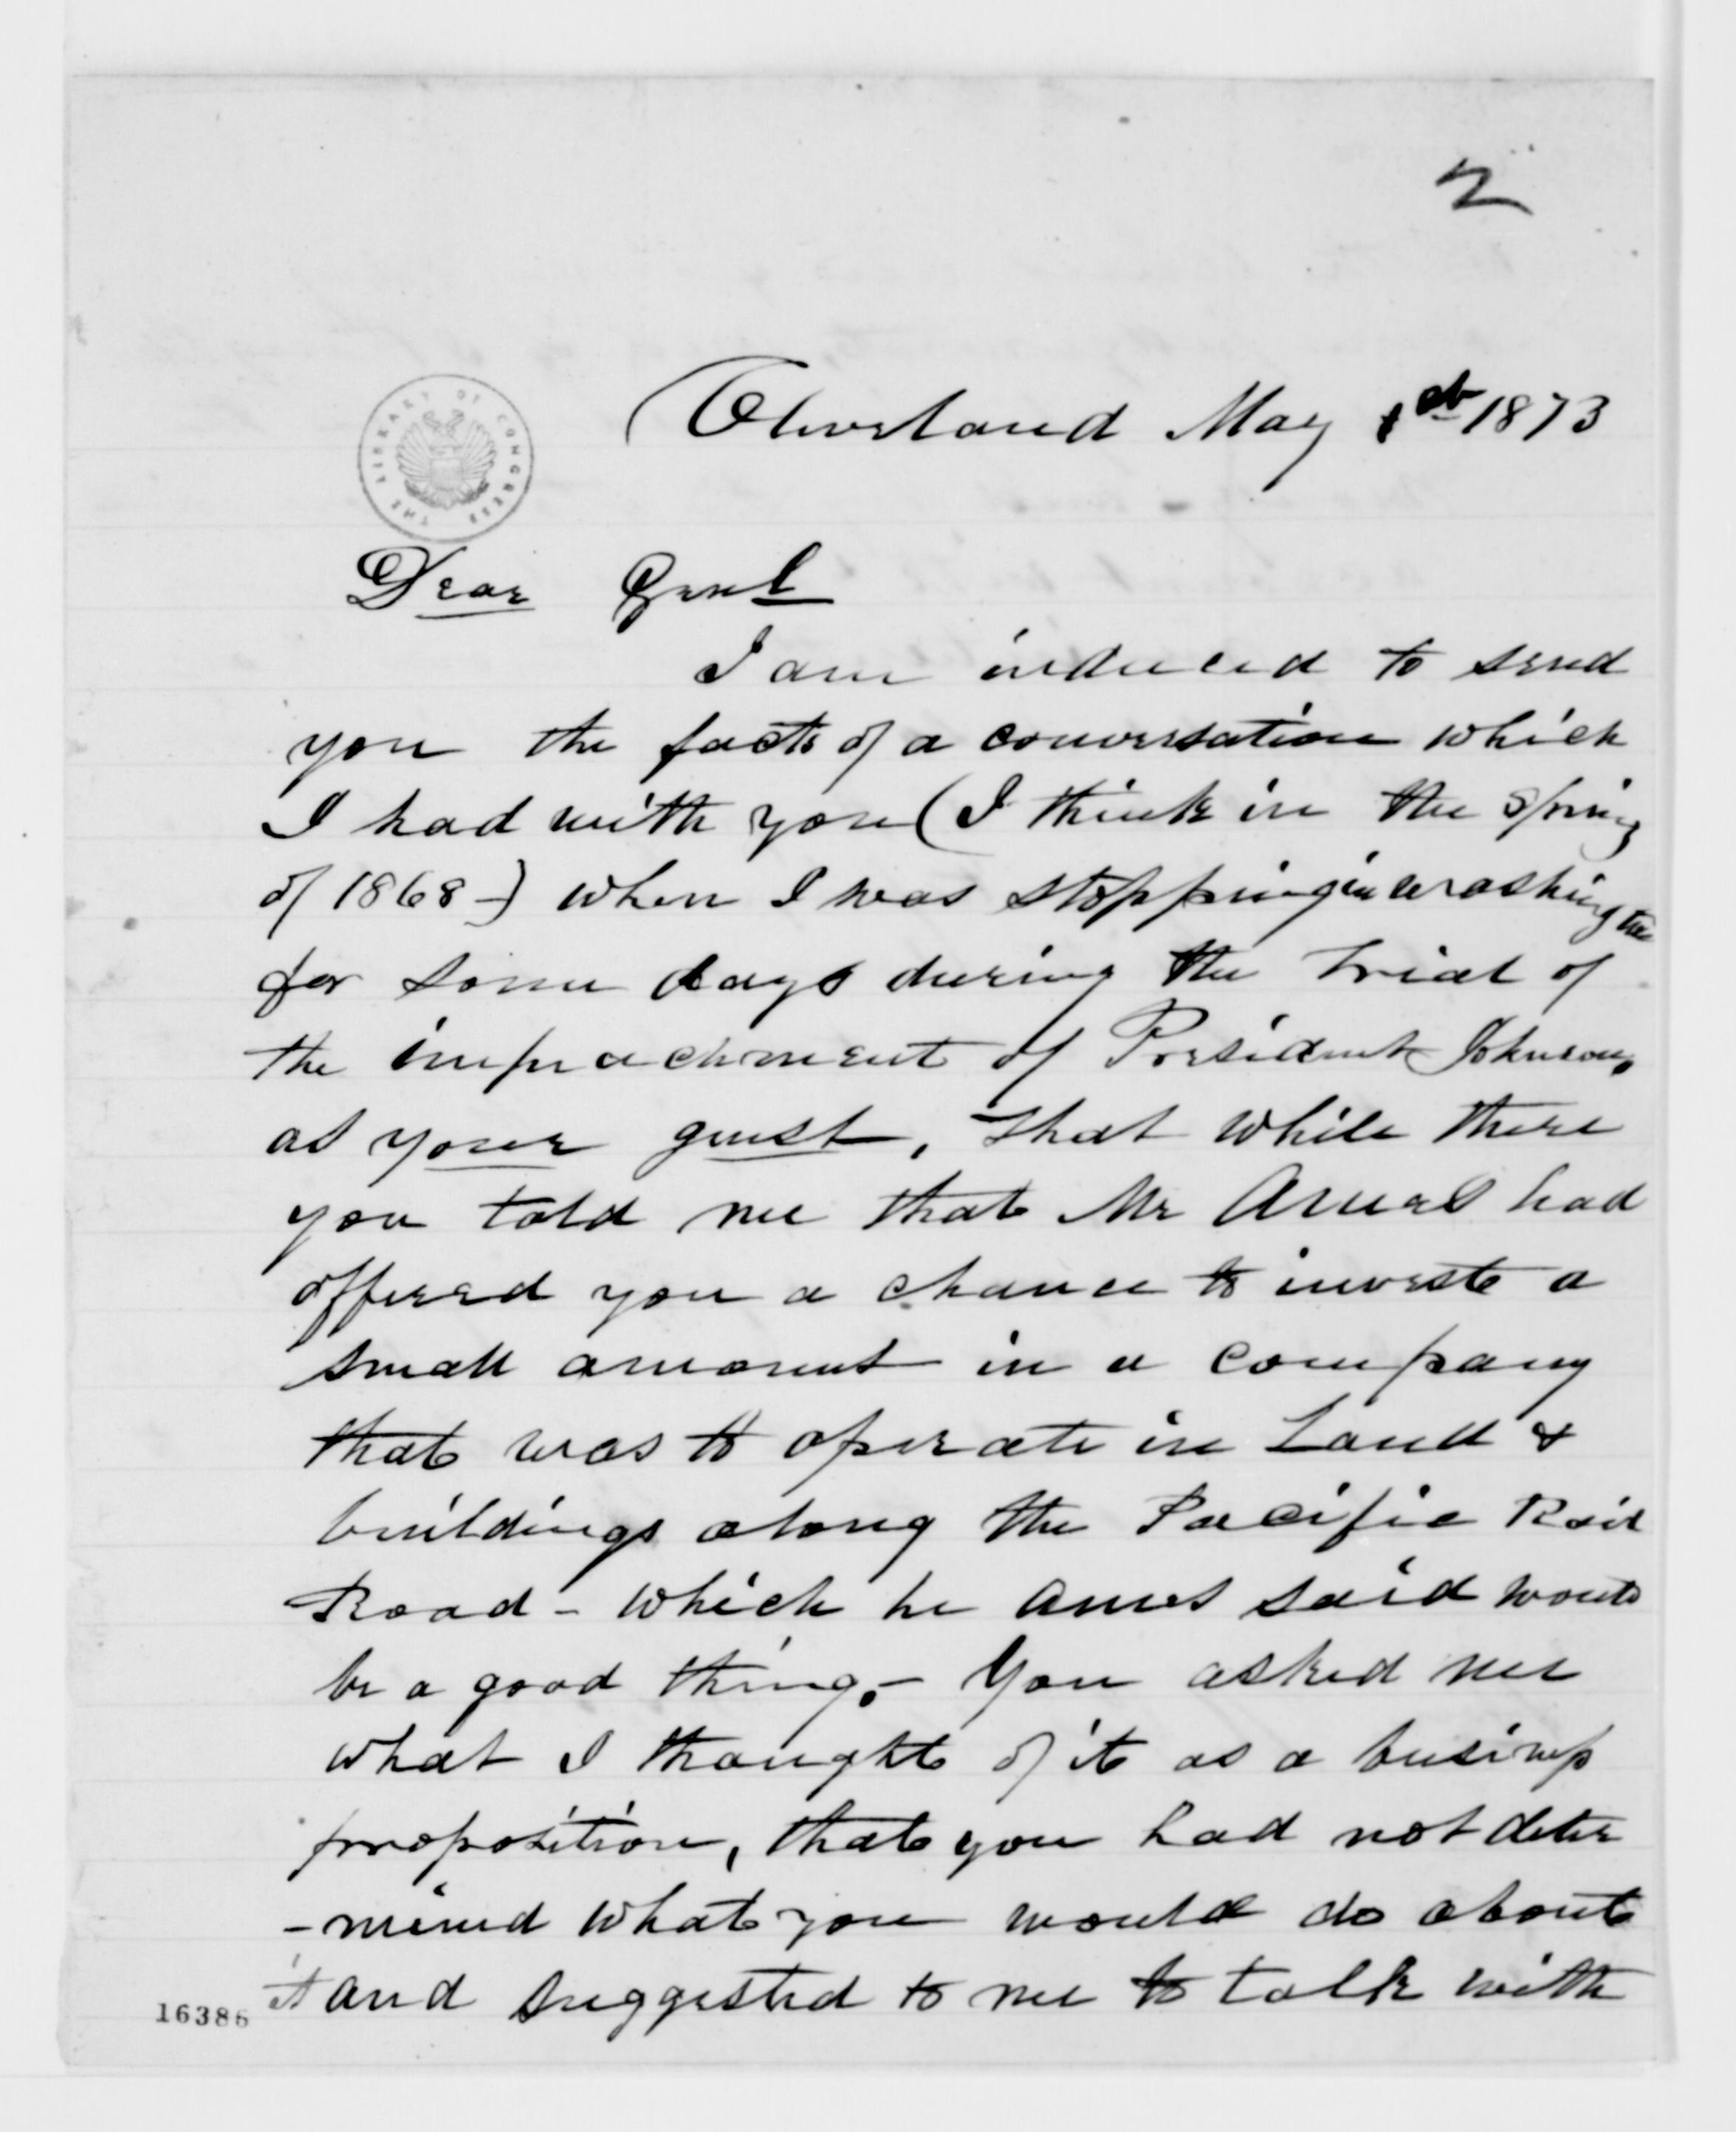 2
Cleveland May 1st 1873
THE LIBRARY OF CONGRESS
Dear Genl
I am induced to send
you the facts of a conversation which
I had with you (I think in the Spring
of 1868-) when I was stopping in Washington
for some days during the trial of
the impeachment of President Johnson,
as your guest, that while there
you told me that Mr Ames had
offered you a chance to invest a
small amount in a company
that was to operate in Land &
buildings along the Pacific Rail
Road - which he Ames said would
be a good thing. - You asked me
what I thought of it as a business
proposition, that you had not deter
-mined what you would do about
it and suggested to me to talk with
16386